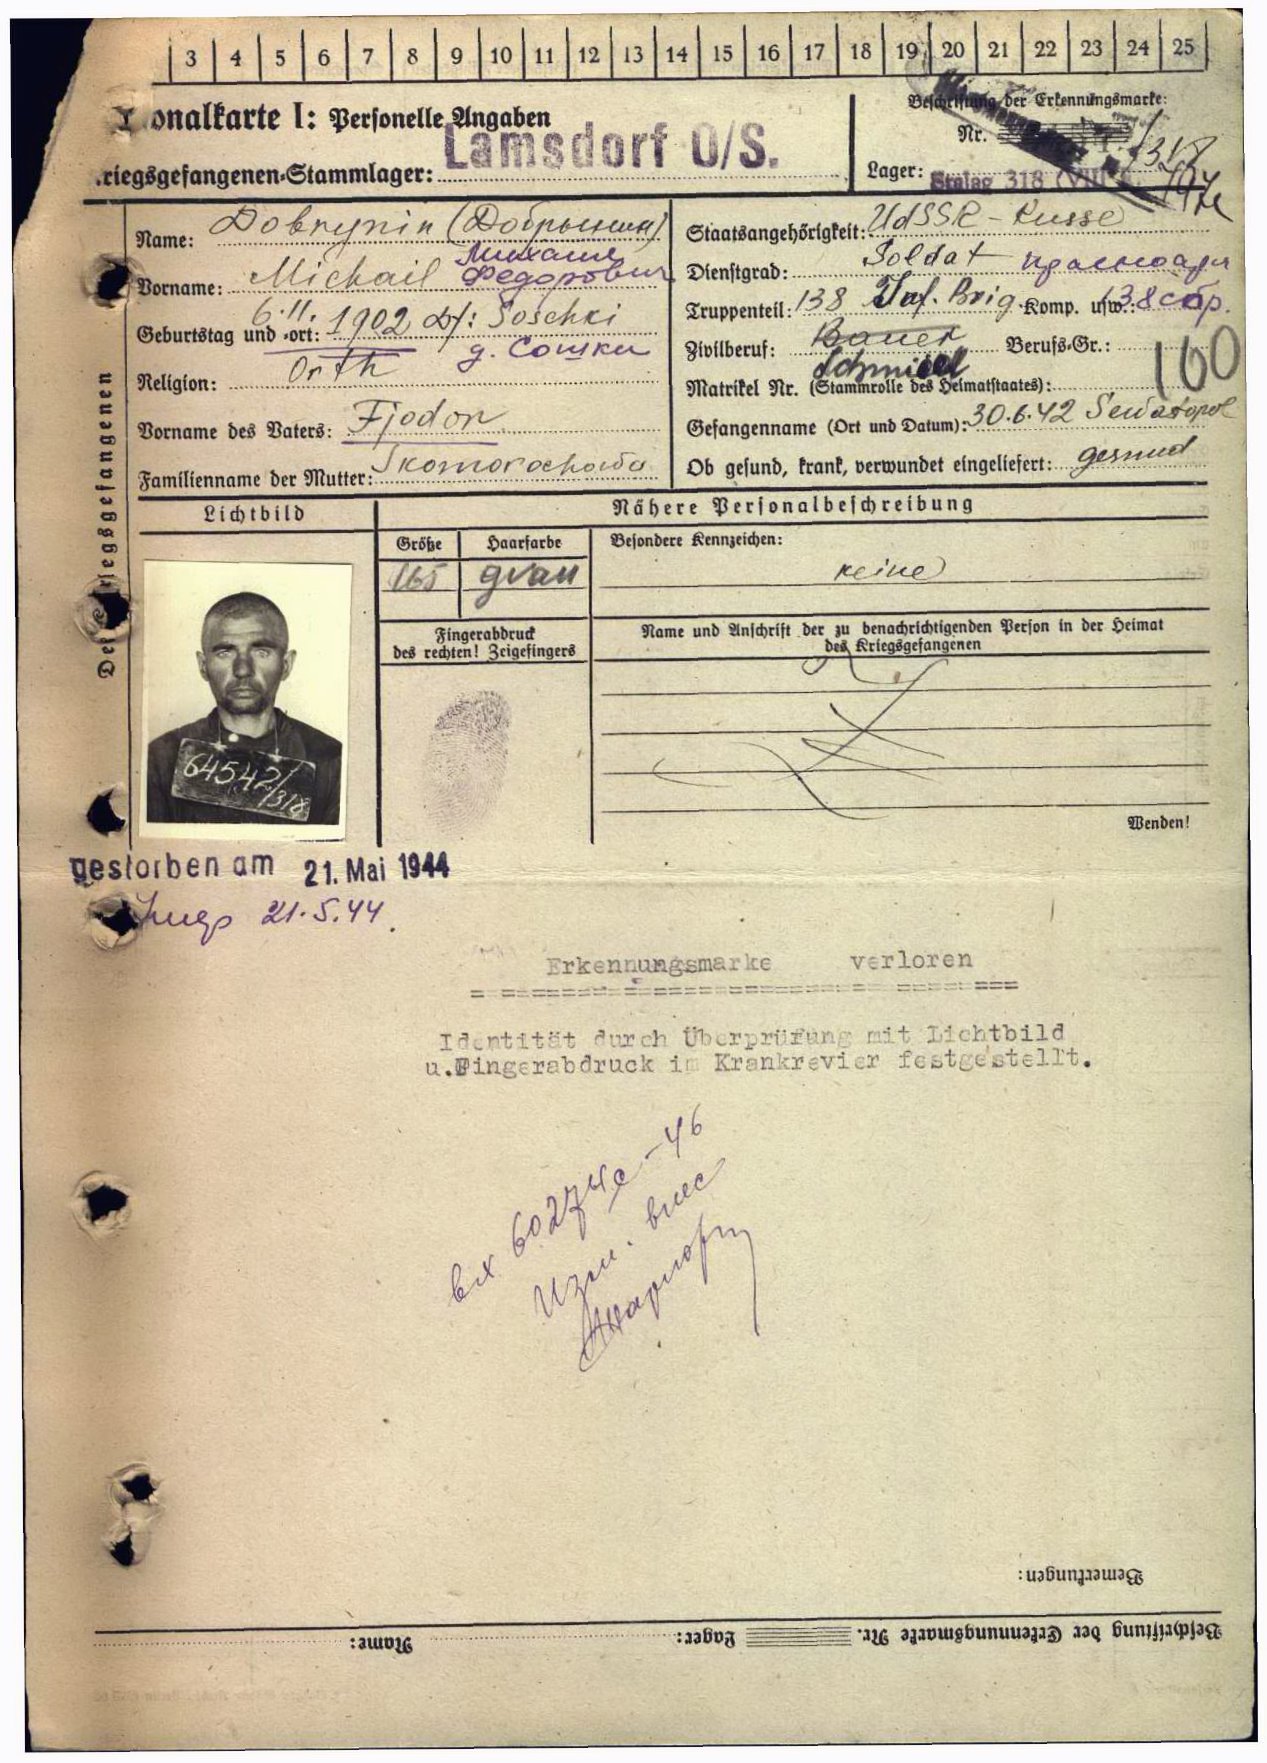 3 4 5 6 7 8 9 10 11 12 13 14 15 16 17 18 19 20 21 22 23 24 25
onalkarte I: Personelle Angaben
riegsgefangenen-Stammlager: Lamsdorf O/S.
Beschriftung der Erkennungsmarke:
Nr.
Lager: Stalag 318 (VIII
Name: Dobrynin (Добрынин)
Vorname: Michail Михаил Федорович
Geburtstag und -ort: 6.11.1902 Df: Soschki
д. Сошки
Religion: Orth
Vorname des Vaters: Fjodor
Familienname der Mutter: Skomorochowa
Staatsangehörigkeit: UdSSR - Russe
Dienstgrad: Soldat
Truppenteil: 138 Inf. Brig. Komp. usw.: 138 сбр.
Zivilberuf: Bauer Berufs-Gr.: 160
Schmied
Matrikel Nr. (Stammrolle des Heimatstaates):
Gefangenname (Ort und Datum): 30.6.42 Sewastopol
Ob gesund, krank, verwundet eingeliefert: gesund
Des Kriegsgefangenen
Lichtbild
Nähere Personalbeschreibung
Größe Haarfarbe Besondere Kennzeichen:
165 grau keine
Fingerabdruck
des rechten! Zeigefingers
Name und Anschrift der zu benachrichtigenden Person in der Heimat
des Kriegsgefangenen
64542/318
Wenden!
gestorben am 21. Mai 1944
21.5.44.
Erkennungsmarke verloren
Identität durch Überprüfung mit Lichtbild
u.Fingerabdruck im Krankrevier festgestellt.
вх 60274с-46
Изм. внес
Bemerkungen:
Beschriftung der Erkennungsmarke Nr. Lager: Name: